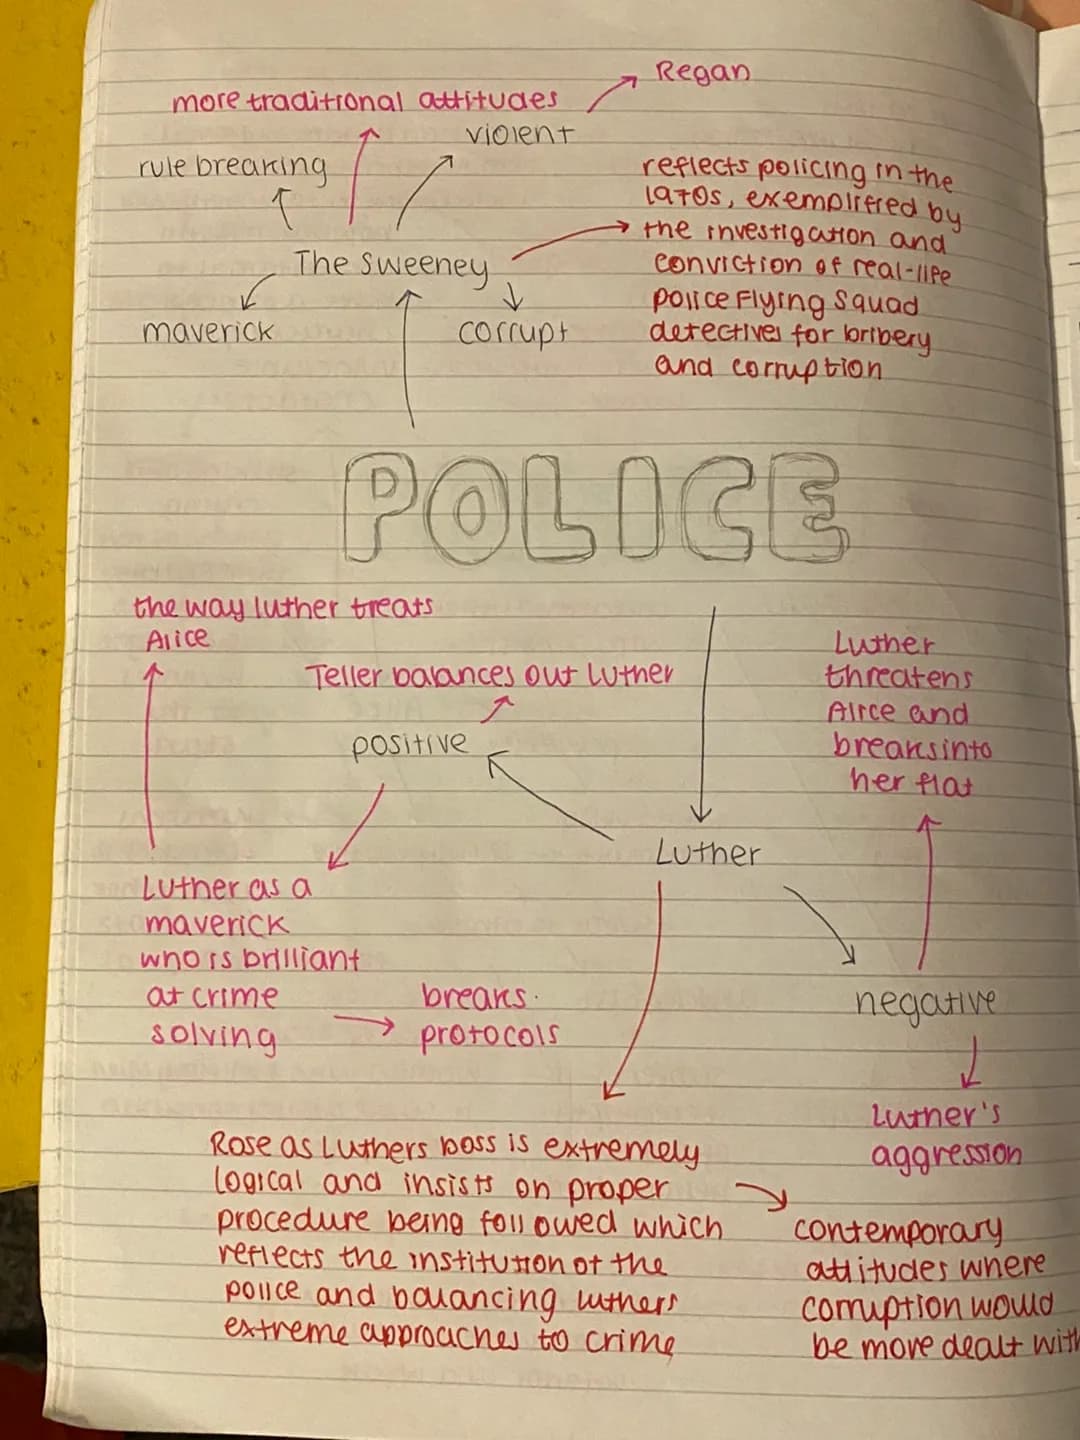 Regan
more traditional attitudes
violent
rule breaking
The Sweeney
maverick
corrupt
reflects policing in the
1970s, exemplified by
the investigation and
conviction of real-life
police Flying Squad
detectives for bribery
and corruption
POLICE
the way luther treats
Alice
Teller balances out Luther
positive
Luther
threatens
Alice and
breaks into
her flat
Luther
Luther as a
maverick
who is brilliant
at crime
solving
breaks
protocols
negative
Luther's
aggression
Rose as Luthers boss is extremely
logical and insists on proper
procedure being followed which
reflects the institution of the
police and balancing luthers
extreme approaches to crime
contemporary
attitudes where
corruption would
be more dealt with